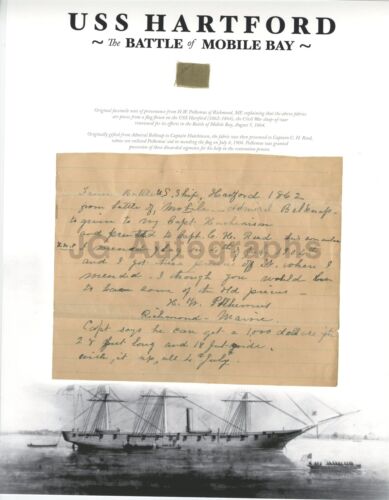 USS HARTFORD
~ The BATTLE of MOBILE BAY ~
Original facsimile note of provenance from H.W. Polhemus of Richmond, ME explaining that the above fabric
are pieces from a flag flown on the USS Hartford (1862-1864), the Civil War sloop-of-war
renowned for its efforts in the Battle of Mobile Bay, August 5, 1864.
Originally gifted from Admiral Belknap to Captain Hutchinson, the fabric was then presented to Captain C. H. Reed,
who enlisted Polhemus aid in mending the flag on July 4, 1906. Polhemus was granted
possession of these discarded segments for his help in the restoration process.
From Battle U.S. Ship, Hartford 1862
from battle of Mobile Admiral Belknap
to given to my Capt. Hutchinson
and presented to Capt C. H. Reed
I mended
and I got this off it. when I
mended. I though you would love
to have some of the old pieces
H. W. Polhemus
Richmond - Maine
Capt says he can get a 1,000 dollars for
28 feet long and 18 feet wide.
with, it up, all to July
JG Autographs